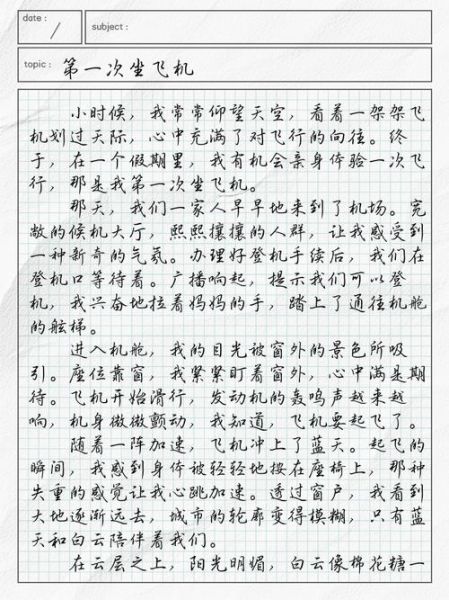 date :
subject :
topic : 第一次坐飞机
小时候，我常常仰望天空，看着一架架飞
机划过天际，心中充满了对飞行的向往。终
于，在一个假期里，我有机会亲身体验一次飞
行，那是我第一次坐飞机。
那天，我们一家人早早地来到了机场。宽
敞的候机大厅，熙熙攘攘的人群，让我感受到
一种新奇的气氛。办理好登机手续后，我们在
登机口等待着。广播响起，提示我们可以登
机，我兴奋地拉着妈妈的手，踏上了通往机舱
的舷梯。
进入机舱，我的目光被窗外的景色所吸
引。座位靠窗，我紧紧盯着窗外，心中满是期
待。飞机开始滑行，发动机的轰鸣声越来越
响，机身微微颤动，我知道，飞机要起飞了。
随着一阵加速，飞机冲上了蓝天。起飞的
瞬间，我感到身体被轻轻地按在座椅上，那种
失重的感觉让我心跳加速。透过窗户，我看到
大地逐渐远去，城市的轮廓变得模糊，只有蓝
天和白云陪伴着我们。
在云层之上，阳光明媚，白云像棉花糖一